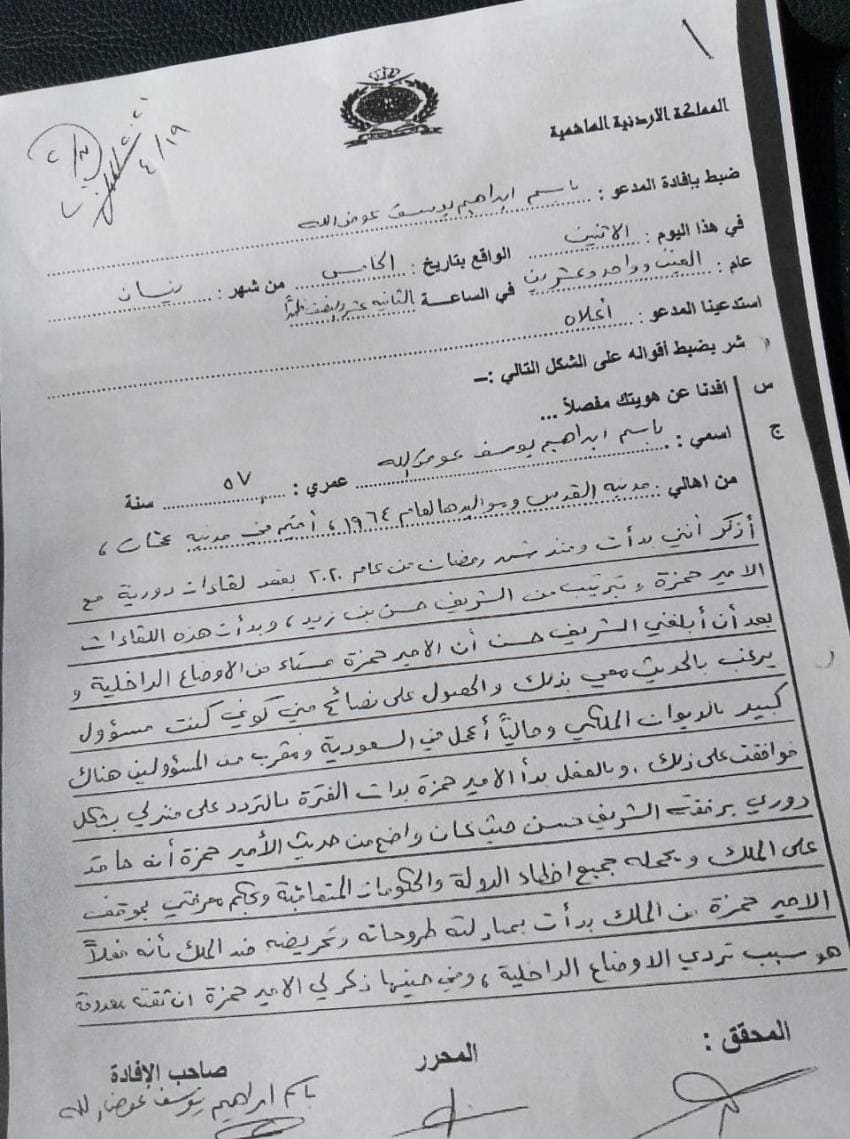 ١
المملكة الاردنية الهاشمية
٢٠٢١
٤/١٩
ضبط بإفادة المدعو : باسم ابراهيم يوسف عوض الله
في هذا اليوم : الاثنين الواقع بتاريخ : الخامس من شهر : نيسان
عام : الفين وواحد وعشرين في الساعة الثانية عشر والنصف ظهراً
استدعينا المدعو : أعلاه
شر بضبط أقواله على الشكل التالي :–
س افدنا عن هويتك مفصلاً ...
ج اسمي : باسم ابراهيم يوسف عوض الله عمري : ٥٧ سنة
من اهالي : مدينة القدس ومواليدها لعام ١٩٦٤ ، أقيم في مدينة عمان ،
أذكر أنني بدأت ومنذ شهر رمضان من عام ٢٠٢٠ بعقد لقاءات دورية مع
الامير حمزة وبترتيب من الشريف حسن بن زيد ، وبدأت هذه اللقاءات
بعد أن أبلغني الشريف حسن أن الامير حمزة مستاء من الاوضاع الداخلية و
يرغب بالحديث معي بذلك والحصول على نصائح مني كوني كنت مسؤول
كبير بالديوان الملكي وحالياً أعمل في السعودية ومقرب من المسؤولين هناك
فوافقت على ذلك . وبالفعل بدأ الامير حمزة بذات الفترة بالتردد على منزلي بشكل
دوري برفقة الشريف حسن حيث كان واضح من حديث الأمير حمزة أنه حاقد
على الملك ويحمله جميع اخطاء الدولة والحكومات المتعاقبة وبحكم معرفتي بموقف
الامير حمزة من الملك بدأت بمبادلته طروحاته وتحريضه ضد الملك بأنه فعلاً
هو سبب تردي الاوضاع الداخلية ، وفي حينها ذكر لي الامير حمزة ان ثقته معدومة
المحقق : المحرر صاحب الإفادة
باسم ابراهيم يوسف عوض الله